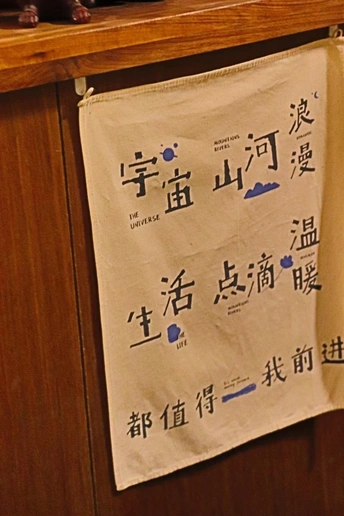 宇宙 山河 浪漫
THE UNIVERSE
MOUNTAINS RIVERS
生活 点滴 温暖
THE LIFE
都值得 我前进